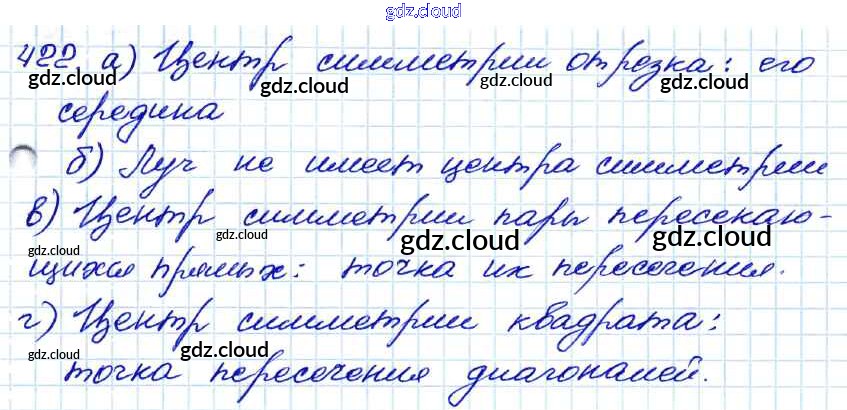 gdz.cloud
422 а) Центр симметрии отрезка: его
gdz.cloud gdz.cloud gdz.cloud gdz.cloud
середина
б) Луч не имеет центра симметрии
в) Центр симметрии пары пересекаю-
gdz.cloud gdz.cloud gdz.cloud gdz.cloud
щихся прямых: точка их пересечения.
г) Центр симметрии квадрата:
gdz.cloud gdz.cloud gdz.cloud gdz.cloud
точка пересечения диагоналей.